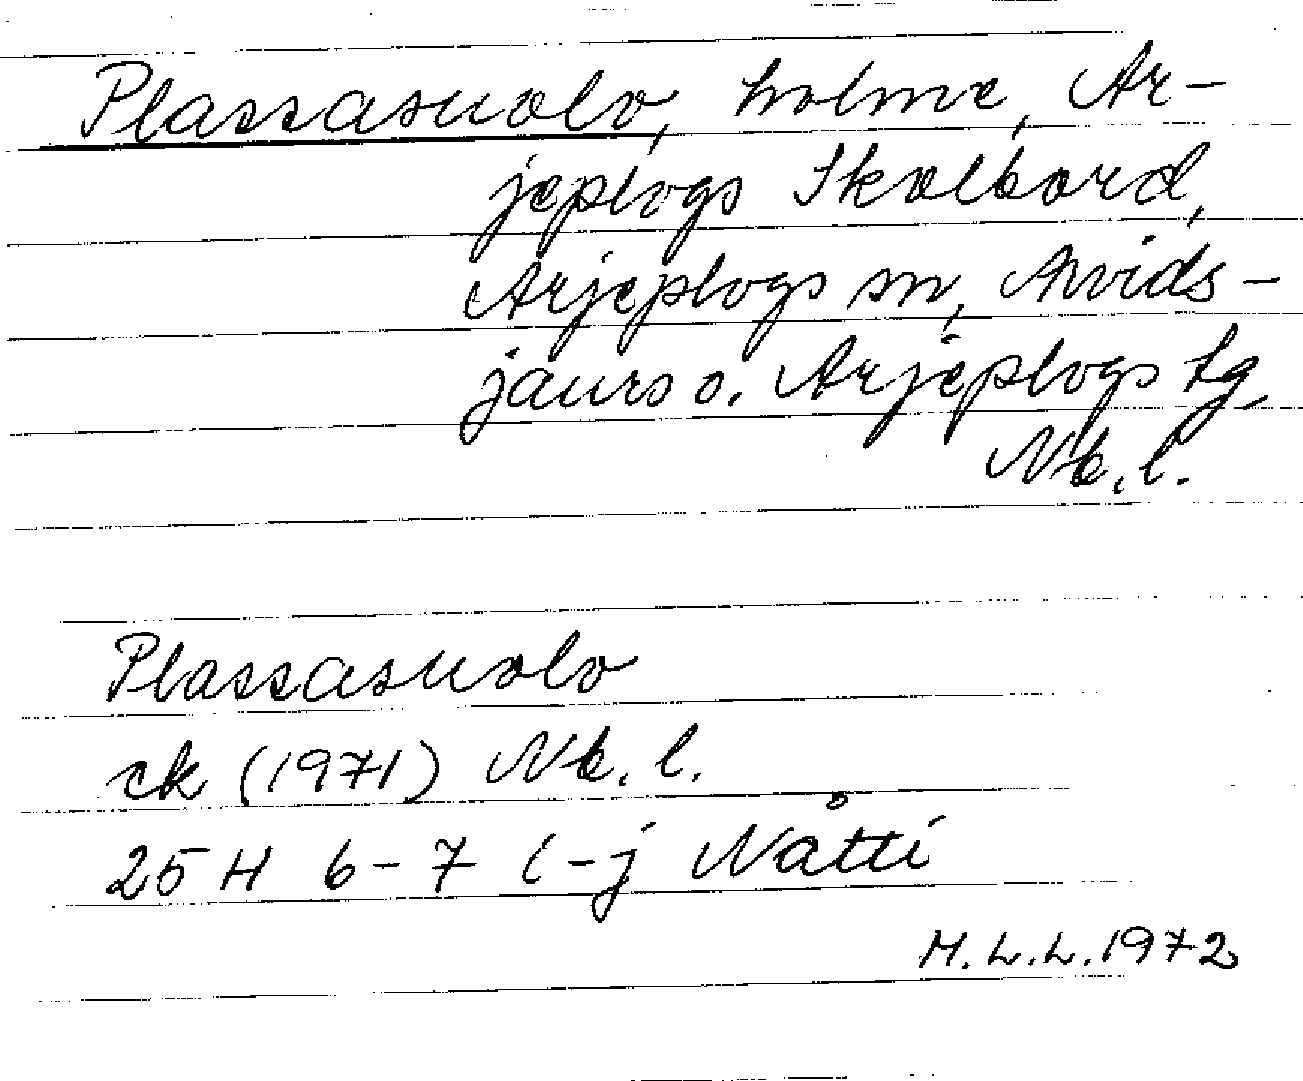 Plassasuolo, holme, Ar-
jeplogs Skolbord,
Arjeplogs sn, Arvids-
jaurs o. Arjeplogs tg,
Nb. l.
Plassasuolo
ek (1971) Nb. l.
25 H 6-7 i-j Nåtti
M.L.L. 1972